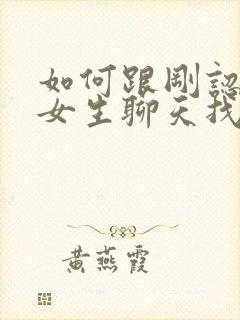 如何跟剛認
女生聊天找
黃燕霞